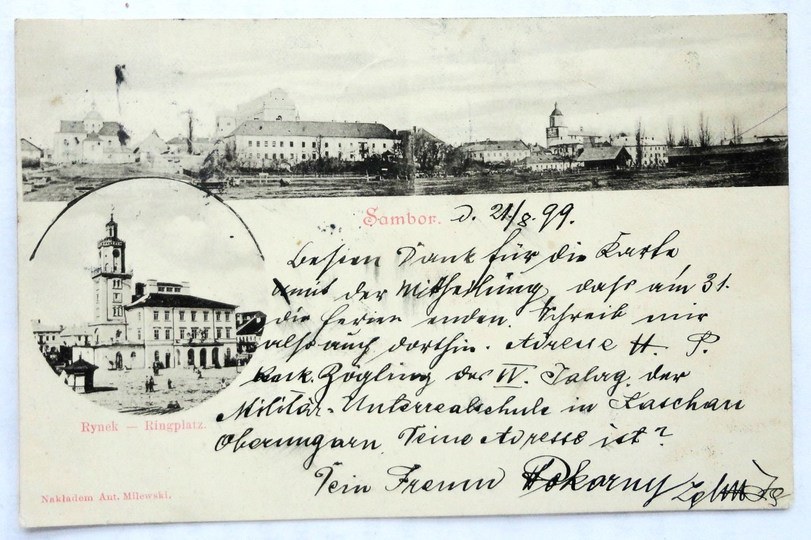 Sambor. d. 21./8. 99.
Besten Dank für die Karte
mit der Mittheilung, dass am 31.
die Ferien enden. Schreib mir
also auch dorthin. Adresse H. P.
Zögling des IV. Jahrg. der
Militär-Unterrealschule in Kaschau
Oberungarn. Deine Adresse ist?
Dein Freund Pokorny
Rynek — Ringplatz.
Nakładem Ant. Milewski.